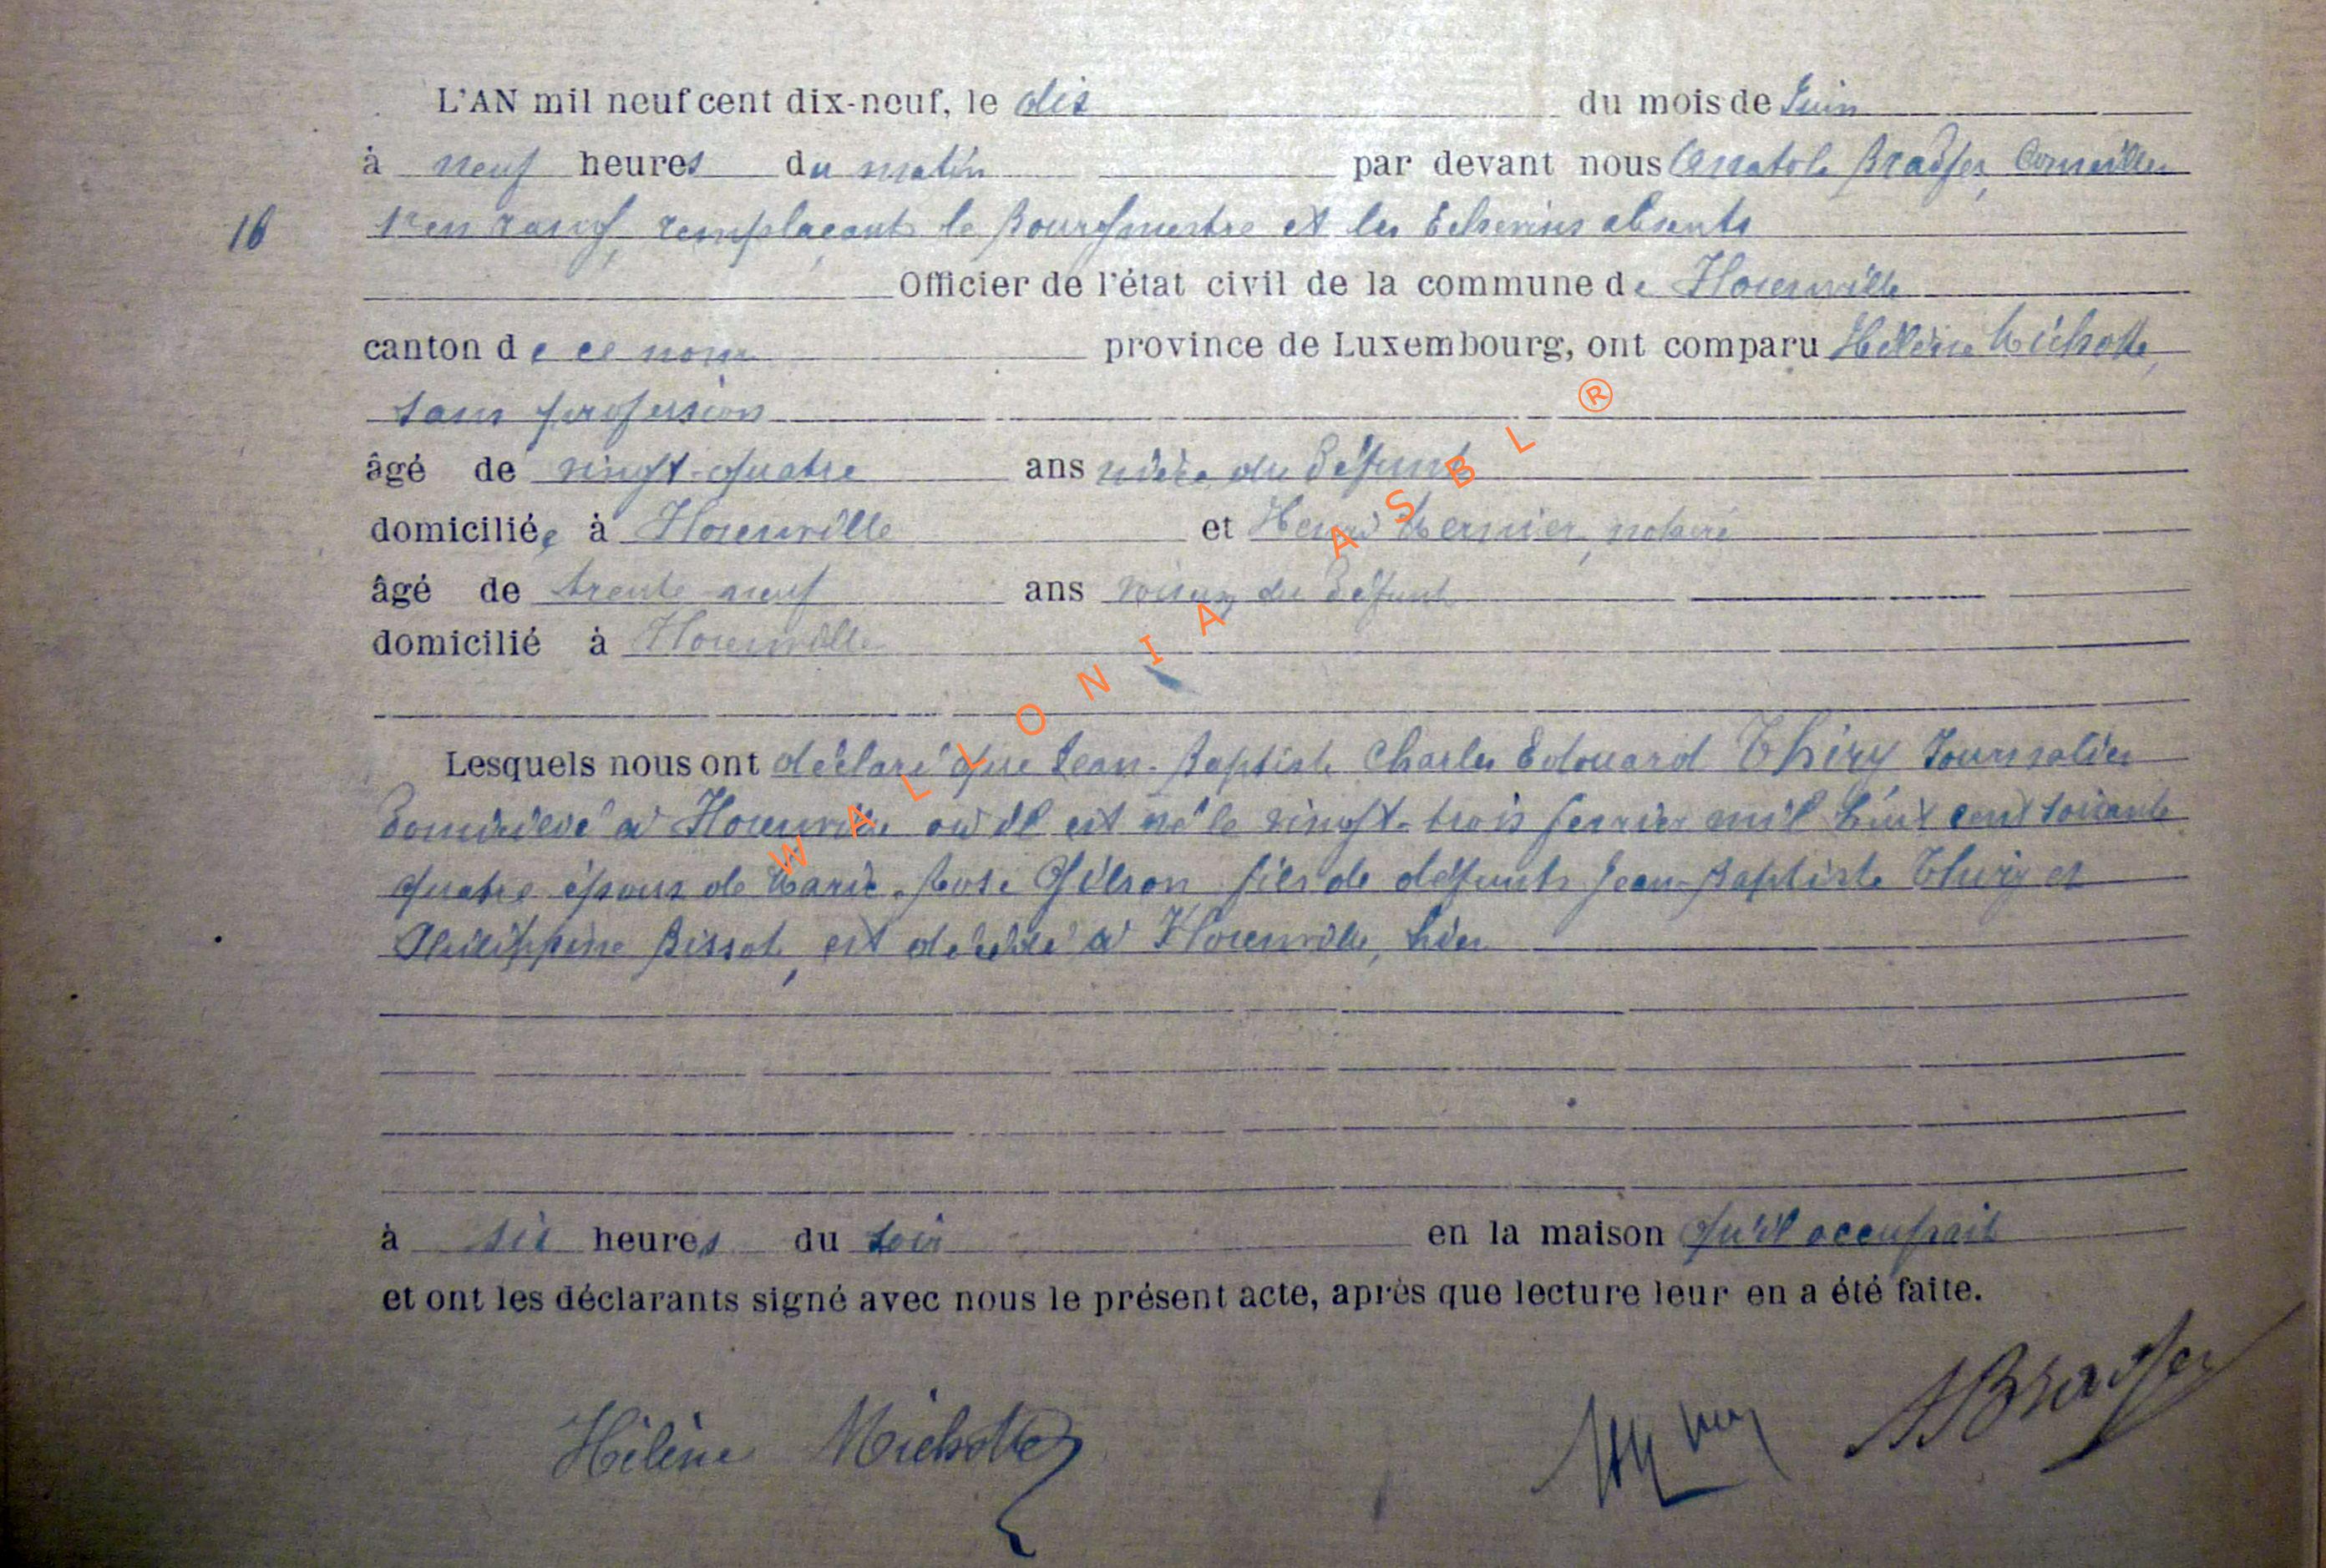 L'AN mil neuf cent dix-neuf, le dix du mois de Juin
à neuf heures du matin par devant nous Anatole Bradfer, Conseiller
16 1er en rang, remplaçant le Bourgmestre et les Echevins absents
Officier de l'état civil de la commune de Florenville
canton de ce nom province de Luxembourg, ont comparu Hélène Michotte,
sans profession
âgé de vingt-quatre ans nièce du défunt
domiciliée à Florenville et Henri Mernier, notaire
âgé de trente neuf ans voisin du défunt
domicilié à Florenville
Lesquels nous ont déclaré que Jean-Baptiste Charles Edouard Thiry Journalier
domicilié à Florenville où il est né le vingt-trois février mil huit cent soixante
quatre époux de Marie-Rose Gilson fils de défunts Jean-Baptiste Thiry et
Philippine Bissot, est décédé à Florenville, hier
à six heures du soir en la maison qu'il occupait
et ont les déclarants signé avec nous le présent acte, après que lecture leur en a été faite.
Hélène Michotte ABradfer
WALLONIA ASBL ®